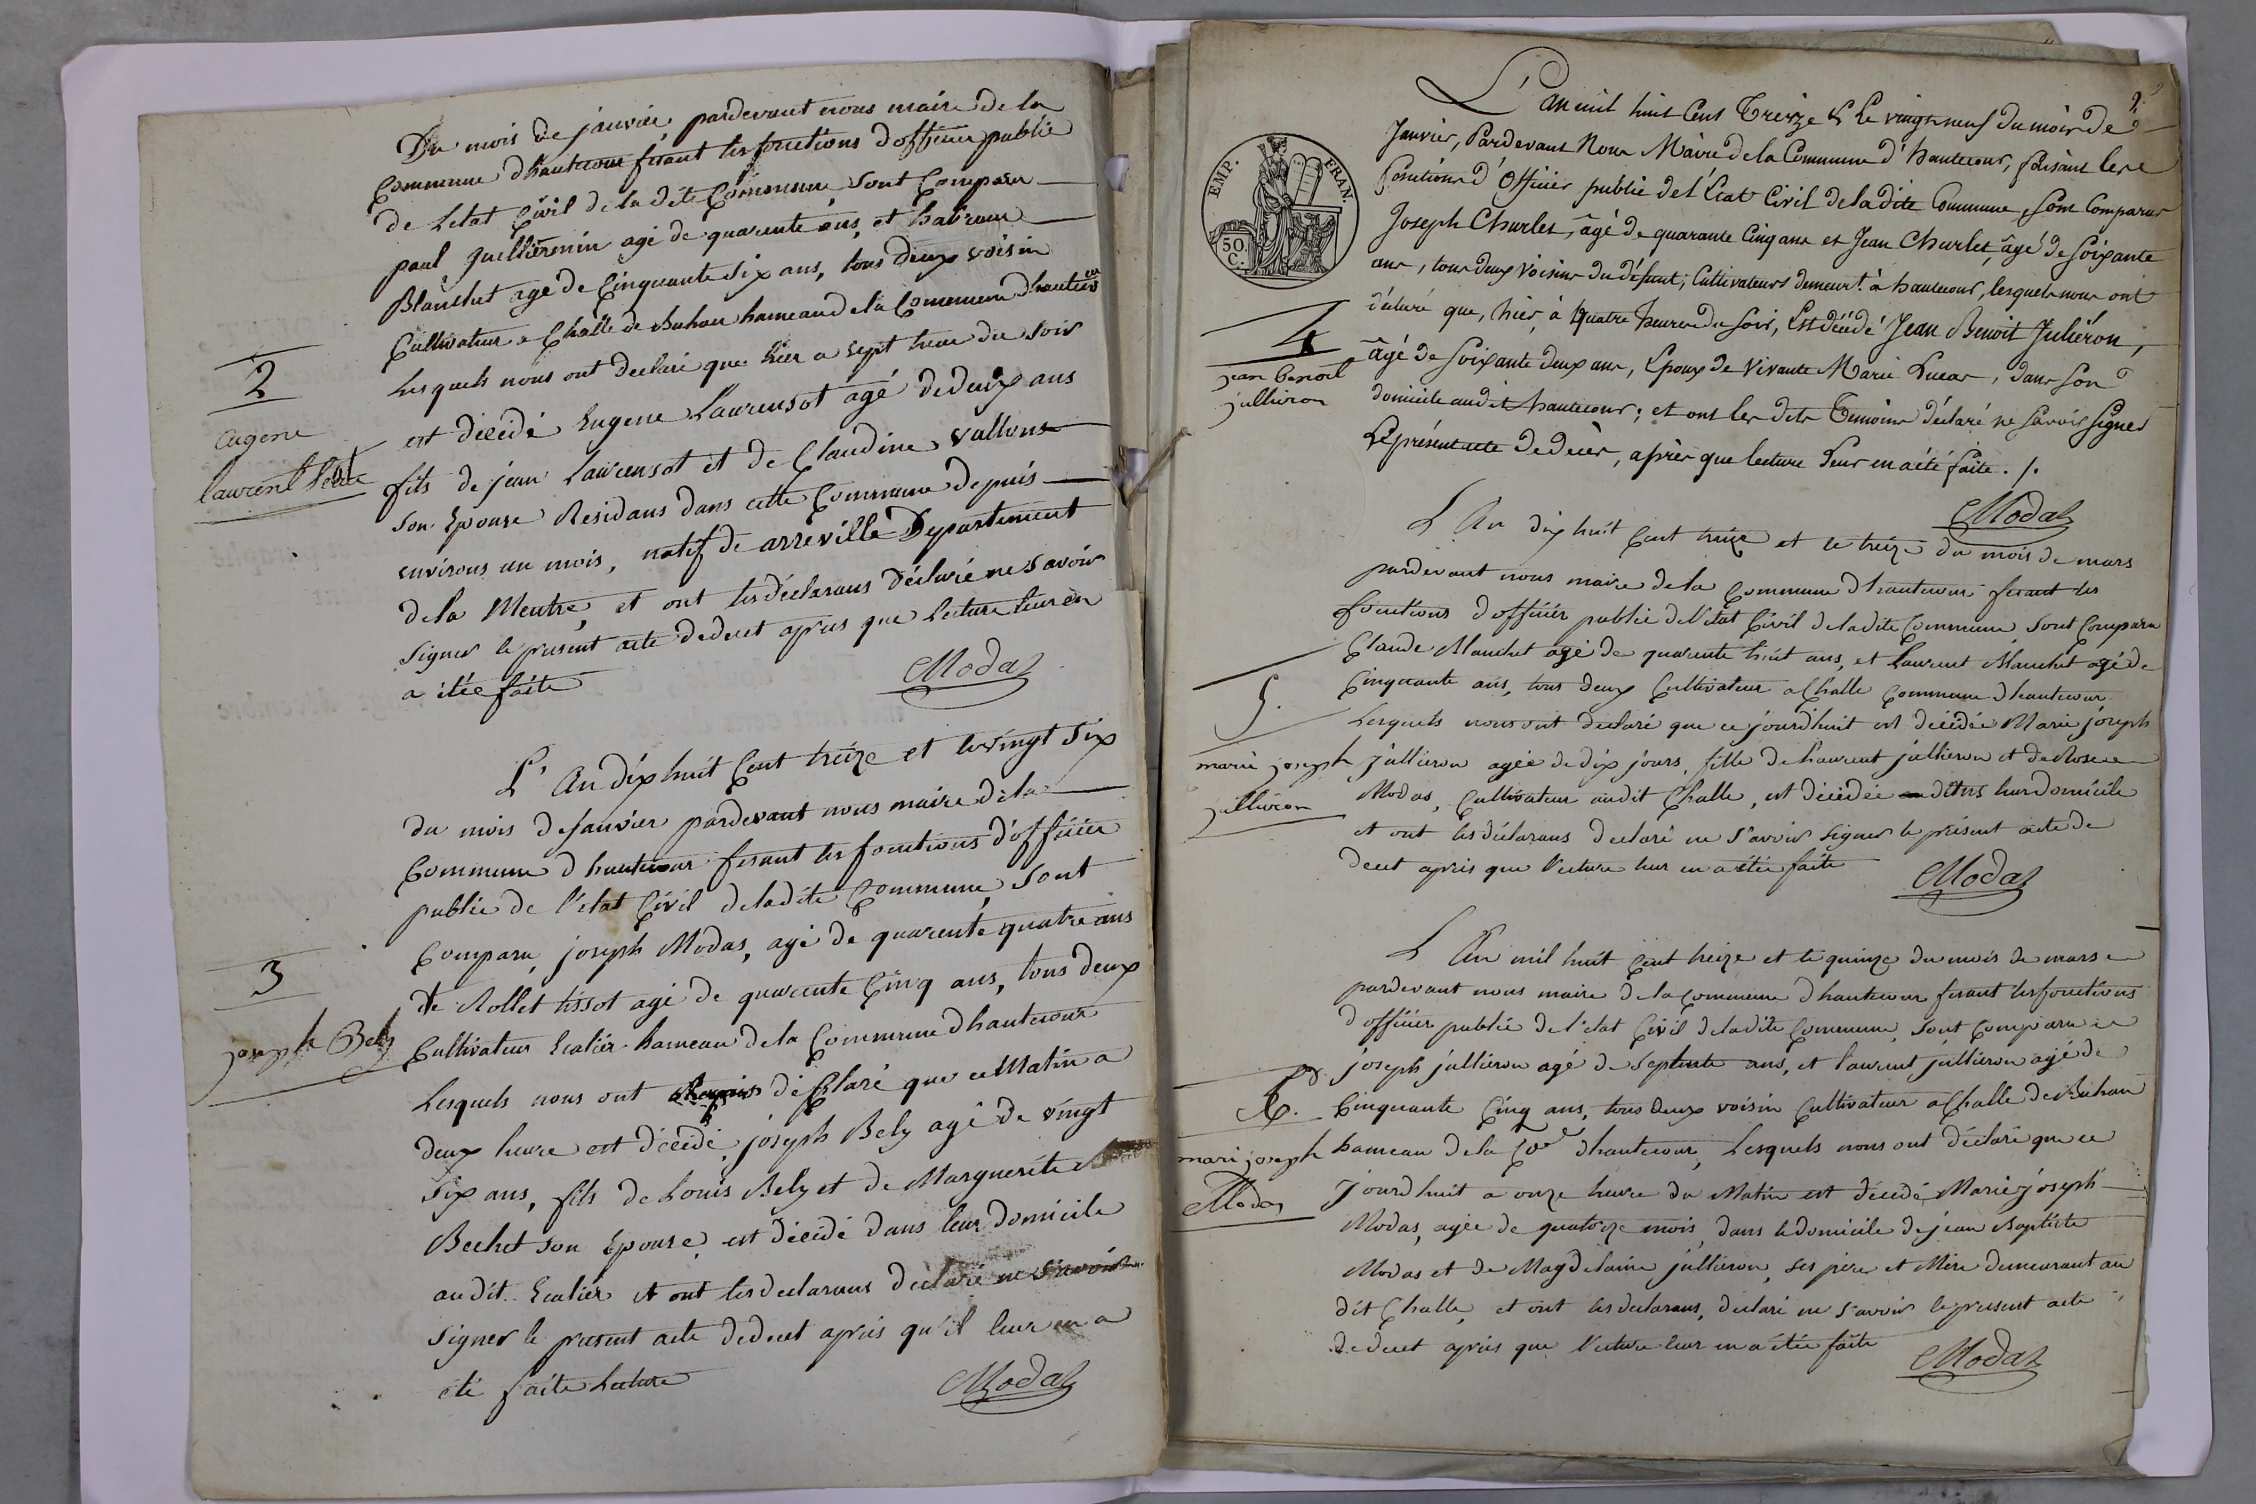 Du mois de janvier, pardevant nous maire de la
Commune d'hautecour fesant les fonctions d'officier public
de Letat Civil de la dite Commune, sont Comparu
paul Guillermin agé de quarente ans, et
Blanchet agé de Cinquante six ans, tous deux voisin
Cultivateur a Challe de Buhan hameau de la Commune d'hautecour
Lesquels nous ont declaré que hier a sept heure du soir
2
est décédé Eugene Laurensot agé de deux ans
Eugene
Laurent
fils de jean Laurensot et de Claudine Vallons
son Epouse Residans dans cette Commune depuis
environs un mois, natif de arreville Departement
de la Meutre, et ont les déclarans déclaré ne savoir
signer le present acte de decet apres que Lecture leur en
a étée faite
Modas
L'An dix huit Cent treize et le vingt six
du mois de janvier pardevant nous maire de la
Commune d'hautecour fesant les fonctions d'officier
public de l'etat Civil de la dite Commune, sont
Comparu, joseph Modas, agé de quarente quatre ans
3
et Rollet tissot agé de quarente Cinq ans, tous deux
joseph Bely
Cultivateur Hameau de la Commune d'hautecour
Lesquels nous ont déClaré que ce Matin a
deux heure est décédé, joseph Bely agé de vingt
six ans, fils de Louis Bely et de Marguerite
Bechet son Epouse, est décédé dans leur domicile
audit et ont les declarans declaré ne s'avoir
signer le present acte de decet après qu'il leur en a
été faite Lecture
Modas
2.
L'An mil huit Cent Treize & Le vingt neuf du mois de
Janvier, Pardevant Nous Maire de la Commune d'hautecour, faisant les
fonctions d'Officier public de l'Etat Civil de la dite Commune, sont Comparus
EMP. FRAN.
50 C.
Joseph Charlet, âgé de quarante Cinq ans et Jean Charlet, âgé de soixante
ans, tous deux Voisins du défunt, Cultivateurs demeurt. à hautecour, lesquels nous ont
déclaré que, hier, à Quatre heures du soir, Est décédé Jean Benoit Juliéron,
4
jean benoit
jullieron
âgé de soixante deux ans, Epoux de Vivante Marie Lucas, dans son
domicile audit hautecour; et ont les dits Temoins déclaré ne savoir signer
Le présent acte de décès, après que lecture leur en a été faite. /.
Modas
L An dix huit Cent treize et le treize du mois de mars
pardevant nous maire de la Commune d'hautecour fesant les
fonctions d'officier public de l'etat Civil de la dite Commune, sont Comparu
Claude Blanchet agé de quarente huit ans, et Laurent Blanchet agé de
Cinquante ans, tous deux Cultivateur a Challe Commune d'hautecour
5.
Lesquels nous ont declaré que ce jourd'huit est décédée Marie joseph
marie joseph
jullieron
jullieron agée de dix jours, fille de Laurent jullieron et de Rose
Modas, Cultivateur audit Challe, est décédée leur domicile
et ont les déclarans declaré ne s'avoir signer le présent acte de
decet après que l'ecture leur en a étée faite
Modas
L An mil huit Cent treize et le quinze du mois de mars
pardevant nous maire de la Commune d'hautecour fesant les fonctions
d'officier public de l'etat Civil de la dite Commune, sont Comparu
joseph jullieron agé de septente ans, et laurent jullieron agé de
6.
Cinquante Cinq ans, tous deux voisin Cultivateur a Challe de Buhan
mari joseph
Modas
hameau de la Cne d'hautecour, Lesquels nous ont déclaré que ce
jourd'huit a onze heure du Matin est décédé Marie joseph
Modas, agée de quatorze mois, dans le domicile de jean Baptiste
Modas et de Magdelaine jullieron, ses père et Mère demeurant au
dit Challe, et ont les declarans, declaré ne s'avoir le present acte
de decet après que l'ecture leur en a étée faite
Modas